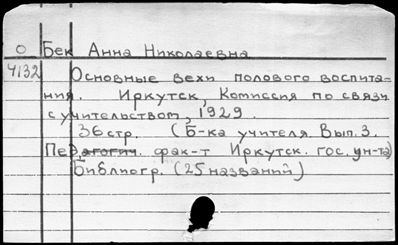 О Бек Анна Николаевна
4132 Основные вехи полового воспита-
ния. Иркутск, Комиссия по связи
с учительством, 1929.
36 стр. (Б-ка учителя. Вып. 3.
Педагогич. фак-т Иркутск. гос. ун-та)
Библиогр. (25 названий)